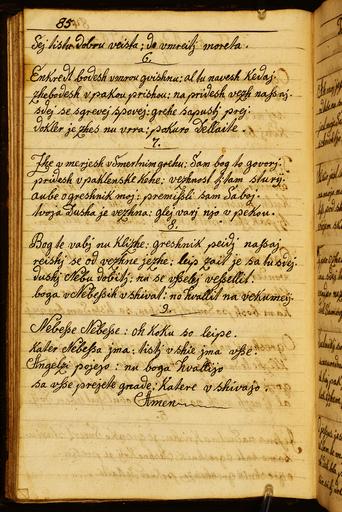 85.
Sej tistu dobru veista; do vmreitj moreta.
6.
Enkredt bodesh vmrou gvishnu; al tu navesh kedaj
zhe bodesh v pakou prishou; na pridesh vezh nassaj
sdej se sgrevej spovej; grehe sapustj prej
dokler je zhes nu vrra; pakuro dellaite
7.
Zhe vmerjesh vSmertnim grehu; Sam bog to govorj
pridesh vpaklenske kehe; vezhnost v tam sturij
aube ogreshnik moj; premisli sam Saboj
tvoja dusha je vezhna; glej varj njo v pekou.
8.
Bog te vabj nu klizhe; greshnik pejdj nassaj
reishj se od vezhne jezhe; leip zait je sa tu sdej
dushj Nebu dobitj; nu se vsselej vessellit
boga vNebessih vshivat; no hvallit na vekumej
9.
Nebesse Nebesse; oh koku so leipe.
kater Nebessa jma; tistj vshie jma vsse;
Angelzi pojejo; nu boga hvallijo
sa vsse prejete gnade; katere vshivajo.
Amen